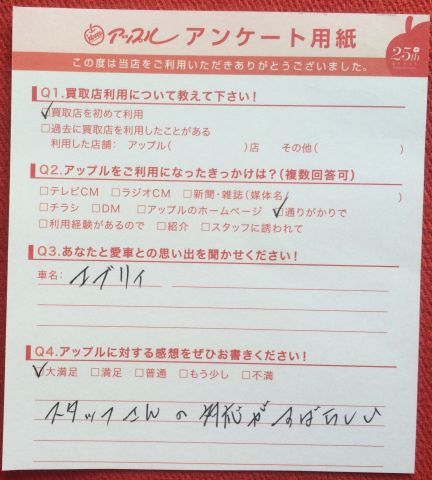 アップル アンケート用紙
25th
この度は当店をご利用いただきありがとうございました。
Q1.買取店利用について教えて下さい!
□買取店を初めて利用
□過去に買取店を利用したことがある
利用した店舗: アップル( )店 その他( )
Q2.アップルをご利用になったきっかけは?(複数回答可)
□テレビCM □ラジオCM □新聞・雑誌(媒体名/ )
□チラシ □DM □アップルのホームページ □通りがかりで
□利用経験があるので □紹介 □スタッフに誘われて
Q3.あなたと愛車との思い出を聞かせください!
車名: エブリィ
Q4.アップルに対する感想をぜひお書きください!
□大満足 □満足 □普通 □もう少し □不満
スタッフさんの対応がすばらしい